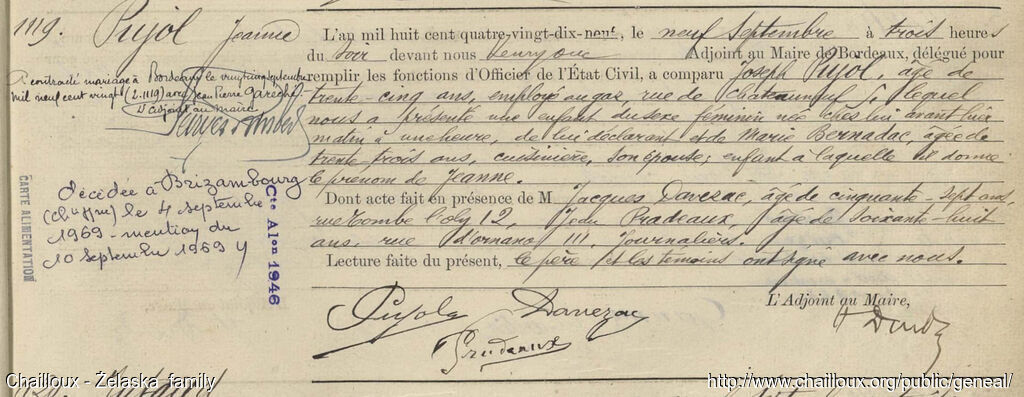 1119. Pujol Jeanne
A contracté mariage à Bordeaux le vingt cinq septembre
mil neuf cent vingt (2.1119) avec Jean Pierre Garéché
L'adjoint au maire
décédée à Brizambourg
(Chte Mme) le 4 septembre
1969 - mention du
10 septembre 1969
CARTE ALIMENTATION
Cte Alon 1946
L'an mil huit cent quatre-vingt-dix-neuf, le neuf septembre à trois heures
du soir devant nous Adjoint au Maire de Bordeaux, délégué pour
remplir les fonctions d'Officier de l'État Civil, a comparu Joseph Pujol, âgé de
trente-cinq ans, employé au gaz, rue de Chateauneuf 51 lequel
nous a présenté une enfant du sexe féminin née chez lui avant hier
matin à une heure, de lui déclarant et de Marie Bernadac, âgée de
trente trois ans, cuisinière, son épouse; enfant à laquelle il donne
le prénom de Jeanne.
Dont acte fait en présence de M Jacques Davezac, âgé de cinquante-sept ans,
rue Tombe l'oly 12, Pradeaux, âgé de soixante-huit
ans, rue d'ornano 111, journaliers.
Lecture faite du présent, le père et les témoins ont signé avec nous.
L'Adjoint au Maire,
Pujol Davezac
Pradeaux
Chailloux - Żelaska family
http://www.chailloux.org/public/geneal/